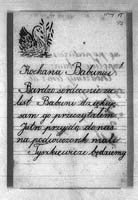 Kochana Babuniu
Bardzo serdecznie za
list Babuni dziękuję
sam go przeczytałem
Jutro przyjdą do nas
na podwieczorek mali
Tyszkiewicze będziemy